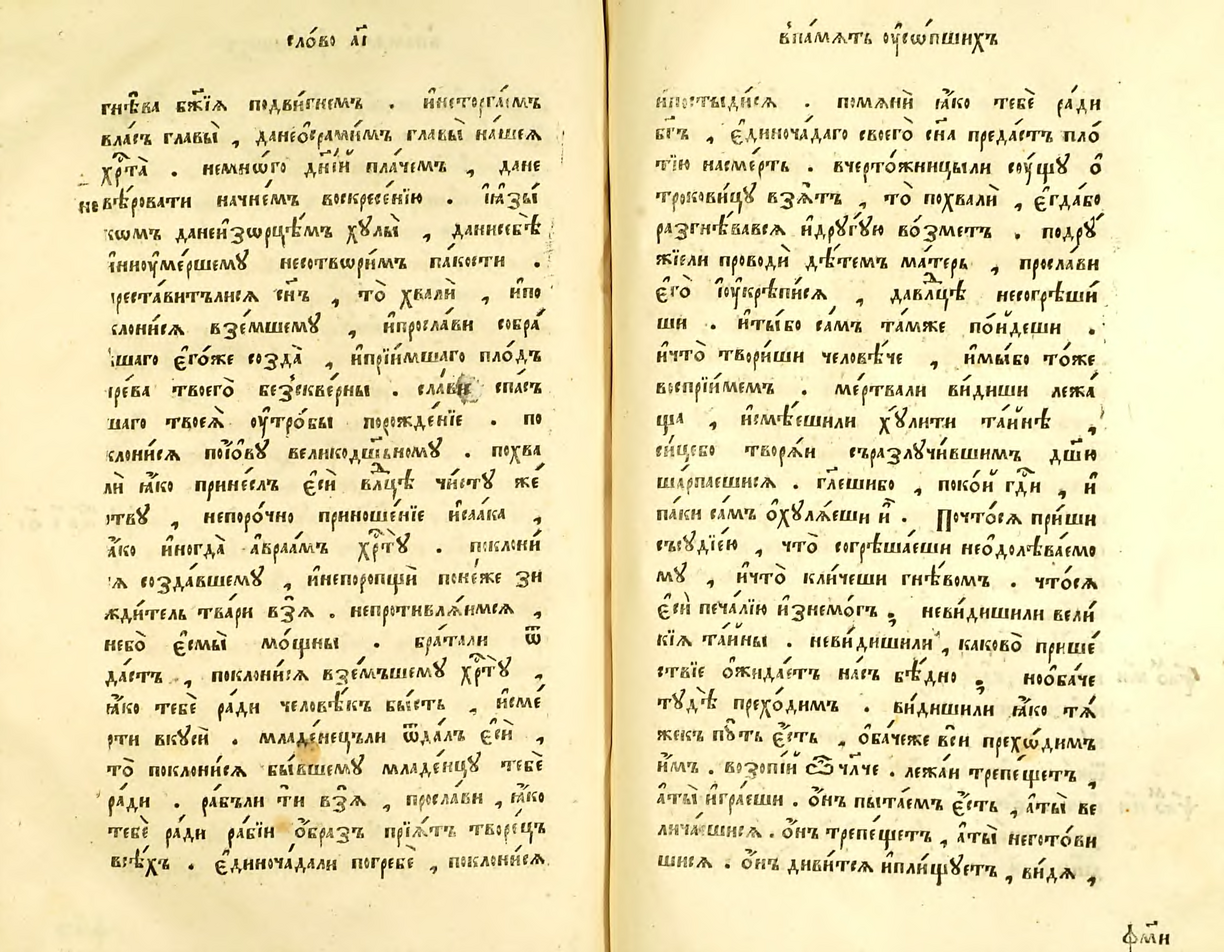 сло́во а҃і
гнѣ́ва бж҃їѧ подви́гнемъ . и҆исторга́имъ
вла́съ главы̀ , данеѡ҆срами́мъ главы̀ на́шеѧ
хрⷭ҇та̀ . немно́го дн҃і́й пла́чемъ , дане
невѣ́ровати начне́мъ воскресе́нїю . і҆ꙗ҆зы́
комъ данеи҆зорце́мъ хꙋлы̀ , данисебѣ̀
и҆ниоу҆ме́ршемꙋ несотвори́мъ па́кости .
преста́витълисѧ сн҃ъ , то̀ хвалѝ , и҆по
клони́сѧ взе́мшемꙋ , и҆просла́ви собра́
вшаго є҆го́же созда̀ , и҆прїи́мшаго пло́дъ
чре́ва твоего̀ безскве́рны . сла́ви спа́съ
шаго твоеѧ̀ оу҆тро́бы порожде́нїе . по
клони́сѧ пої́овꙋ великодш҃ьномꙋ . похва
лѝ ꙗ҆́ко прине́слъ є҆сѝ влⷣцѣ чи́стꙋ же́
ртвꙋ , непоро́чно приноше́нїе и҆саа́ка ,
ꙗ҆́ко и҆ногда̀ а҆враа́мъ хрⷭ҇тꙋ̀ . поклони́
сѧ созда́вшемꙋ , и҆непоропщѝ поне́же зи
жди́тель тва́ри взѧ̀ . непротивлѧ́имсѧ ,
небо̀ є҆смы̀ мо́щны . бра́тали ѿ
да́стъ , поклони́сѧ взе́мъшемꙋ хрⷭ҇тꙋ̀ ,
ꙗ҆́ко тебѐ ра́ди человѣ́къ бы́сть , и҆сме́
рти вкꙋсѝ . младе́нецъли ѿда́лъ є҆сѝ ,
то̀ поклони́сѧ бы́вшемꙋ младе́нцꙋ тебѐ
ра́ди . ра́бъли тѝ взѧ̀ , просла́ви , ꙗ҆́ко
тебѐ ра́ди ра́бїи ѻ҆́бразъ прїѧ́тъ творе́цъ
всѣ́хъ . є҆диноча́дали погребѐ , поклони́сѧ
впа́мѧть оу҆со́пшихъ
и҆постыди́сѧ . помѧнѝ ꙗ҆́ко тебѐ ра́ди
бг҃ъ , є҆диноча́даго своего̀ сн҃а преда́стъ пло́
тїю насме́рть . вчерто́жницыли сꙋ́щꙋ ѻ҆
трокови́цꙋ взѧ́тъ , то̀ похвалѝ , є҆гда́бо
разгнѣ́вавсѧ и҆дрꙋгꙋ́ю во́зметъ . подрꙋ́
жїели проводѝ дѣ́темъ ма́терь , просла́ви
є҆го̀ і҆оу҆крѣпи́сѧ , давлⷣцѣ несогрѣши́
ши . и҆ты́бо са́мъ та́мже по́йдеши .
и҆что̀ твори́ши человѣ́че , и҆мы́бо то́же
воспрїи́мемъ . ме́ртвали ви́диши лежа́
ща , и҆смѣ́ешили хꙋ́лити та́йнѣ ,
си́цебо творѧ́и съразлꙋчи́вшимъ дш҃ю
шарпа́ешисѧ . гл҃ешибо , поко́й гдⷭ҇и , и҆
па́ки са́мъ ѻ҆хꙋлѧ́еши и҆̀ . Почто́сѧ при́ши
съсꙋдїе́ю , что̀ согрѣша́еши неодолѣва́емо
мꙋ , и҆что̀ кли́чеши гнѣ́вомъ . что́сѧ
є҆сѝ печа́лїю и҆знемо́гъ ; неви́дишили вели́
кїѧ та́йны . неви́дишили , каково̀ прише́
ствїе ѻ҆жида́етъ на́съ бѣ́дно ; ноѻ҆ба́че
тꙋдѣ̀ прехо́димъ . ви́дишили ꙗ҆́ко тѧ́
жекъ пꙋ́ть є҆́сть , ѻ҆ба́чеже всѝ прехо́димъ
и҆́мъ . возопі́й ѽ чл҃че . лежа́и трепе́щетъ ,
а҆ты̀ и҆гра́еши . ѻ҆́нъ пыта́емъ є҆́сть , а҆ты̀ ве
лича́ешисѧ . ѻ҆́нъ трепе́щетъ , а҆ты̀ негото́ви
шисѧ . ѻ҆́нъ диви́тсѧ и҆плищꙋ́етъ , ви́дѧ ,
фм҃и